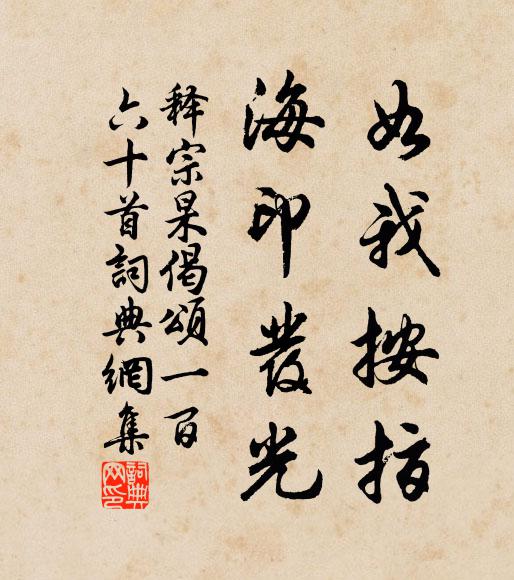 如我按指
海印發光
释宗杲偈頌一百
六十首詞典網集
詞典网印